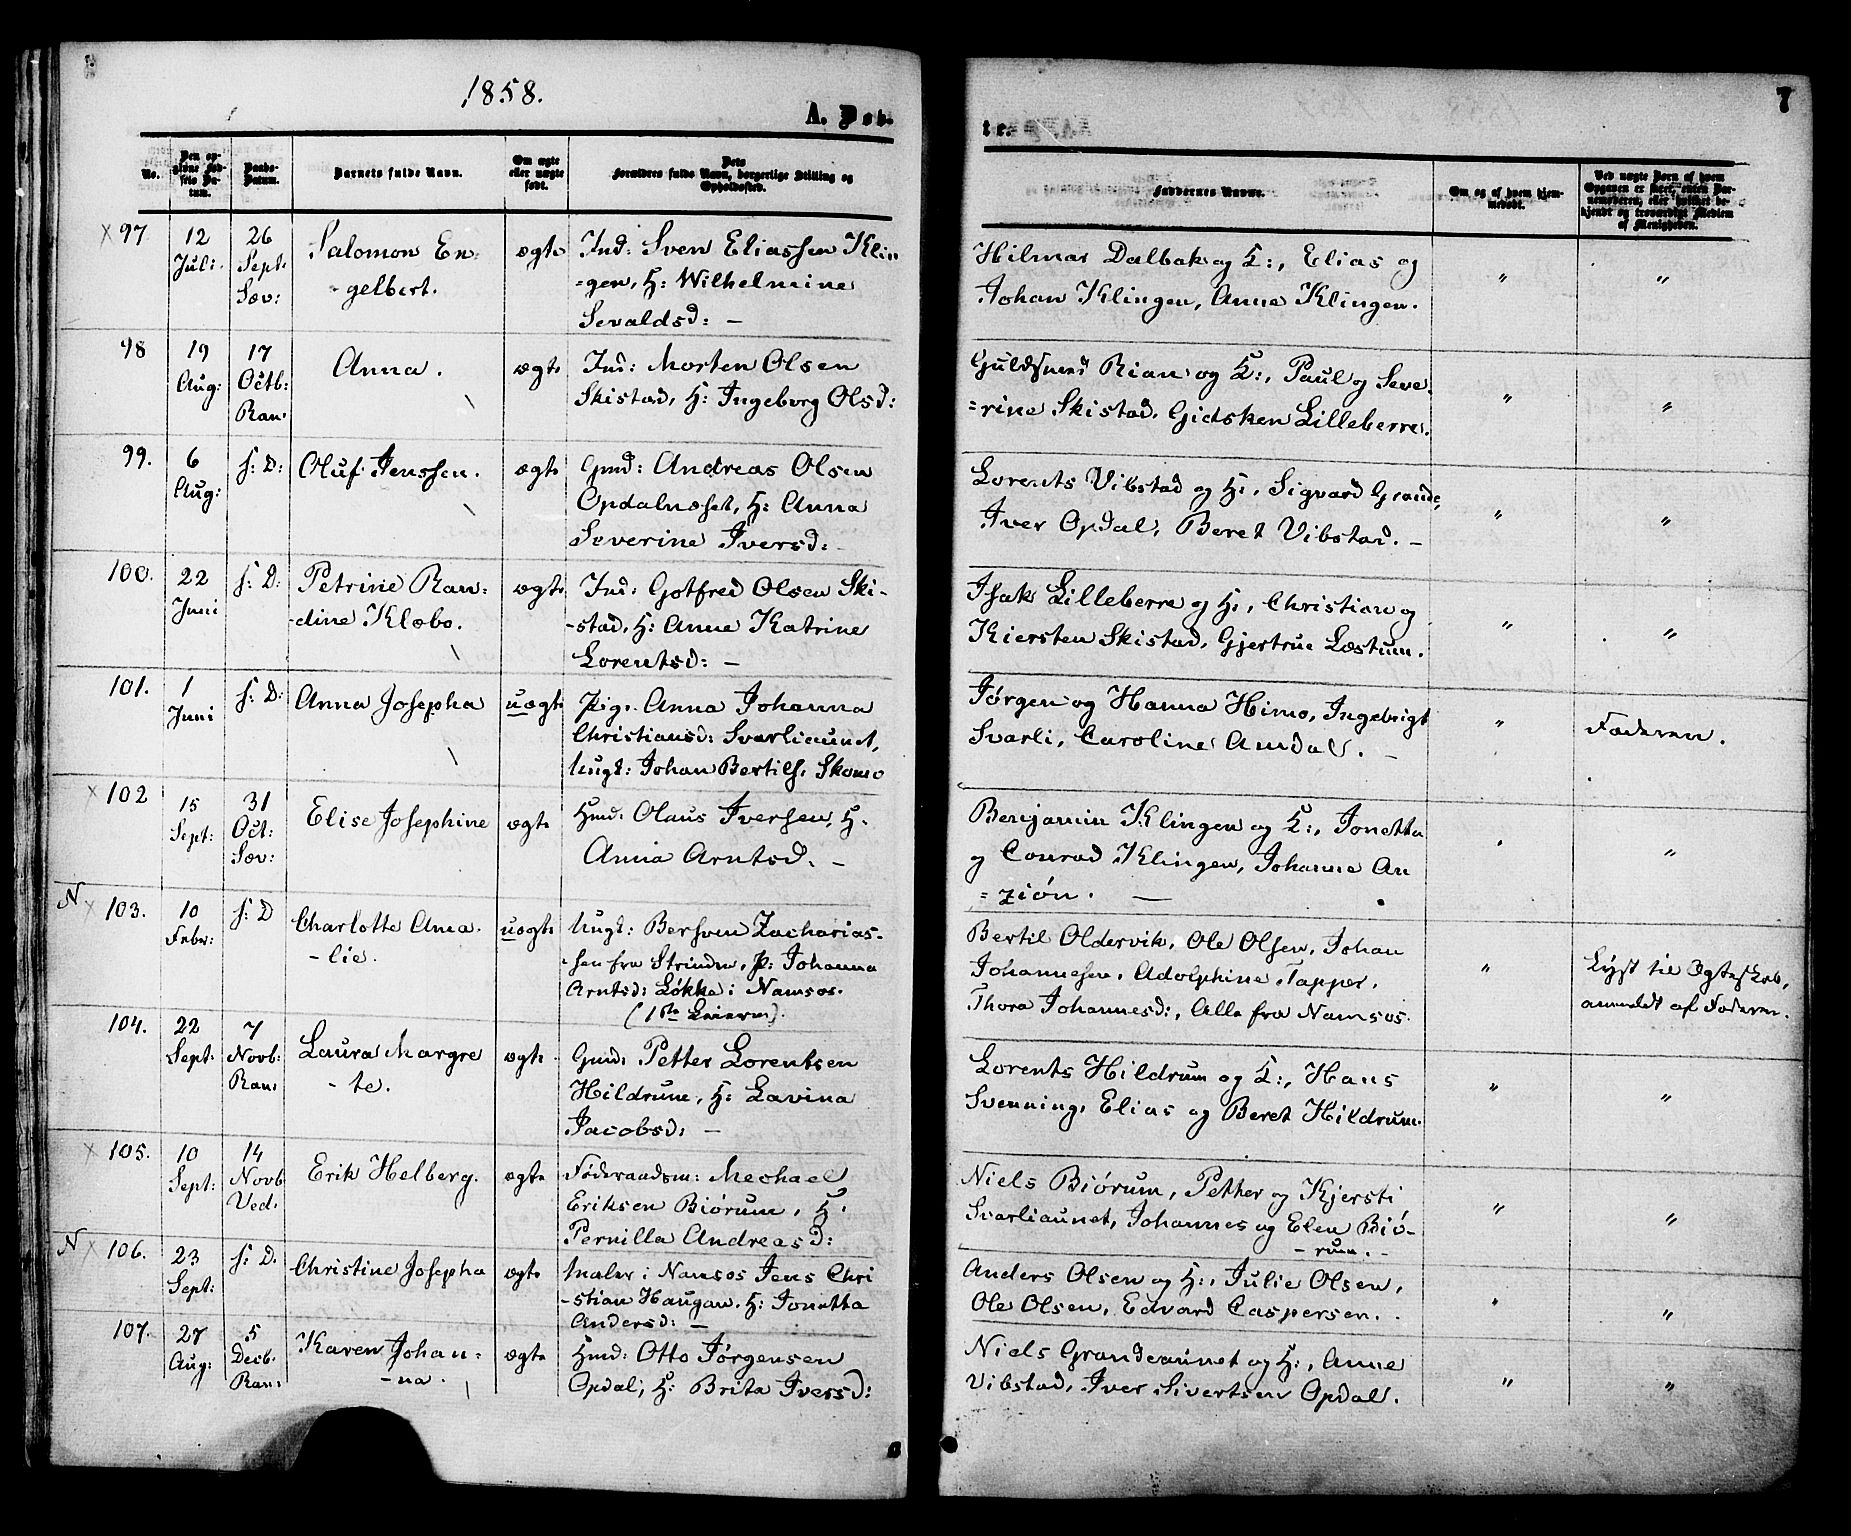 1858.
A. Døb-
te.
7
No.
Den op-
givne Fød-
sels Da-
tum.
Daabs-
Datum.
Barnets fulde Navn.
Om ægte
eller uægte
født.
Dets
Forældres fulde Navn, borgerlige Stilling og
Opholdssted.
Faddernes Navne.
Om og af hvem hjem-
medøbt.
Ved uægte Børn af hvem
Opgaven er skeet, enten Bar-
nemoderen, eller hvilket be-
kjendt og troværdigt Medlem
af Menigheden.
× 97.
12
Juli.
26
Sept:
Sæv:
Salomon En-
-gelbert.
ægte
Ind: Sven Eliassen Klin
-gen, H: Wilhelmine
Sevaldsd: –
Hilmar Dalbak og K:, Elias og
Johan Klingen, Anne Klingen.
"
"
98
19
Aug:
17
Octb:
Ran:
Anna.
ægte
Ind: Morten Olsen
Skistad, H: Ingeborg Olsd:
Rian og K:, Paul og Seve-
=rine Skistad, Gidsken Lilleberre.
"
"
99.
6
Aug:
s: D:
Oluf Jenssen.
ægte
Gmd: Andreas Olsen
Opdalnæset, H: Anna
Severine Iversd: –
Lorents Vibstad og H:, Sigvard Grande,
Iver Opdal, Beret Vibstad. –
"
"
100.
22
Juni
s: D:
Petrine Ran-
-dine Klæbo.
ægte
Ind: Gotfred Olsen Ski-
-stad, H: Anne Katrine
Lorentsd: –
Isak Lilleberre og H:, Christian og
Kiersten Skistad, Gjertrue Læstum.
"
"
101.
1
Juni
s: D:
Anna Josepha
uægte
Pige Anna Johanna
Christiansd: Svarliaunet,
Ungk: Johan Bertils. Skomo
Jørgen og Hanna Himo, Ingebrigt
Svarli, Caroline Amdal. –
"
Faderen.
× 102
15
Sept:
31
Oct:
Sæv:
Elise Josephine
ægte
Hmd: Olaus Iversen, H.
Anna Arntsd. –
Benjamin Klingen og K:, Jonetta
og Conrad Klingen, Johanne An
=ziøn. –
"
"
N × 103.
10
Febr:
s: D
Charlotte Ama-
-lie.
uægte
Ungk: Bersven Zacharias-
-sen fra Strinden, P: Johanna
Arntsd: Løkke i Namsos.
(1ste Leierm).
Bertil Oldervik, Ole Olsen, Johan
Johannesen, Adolphine Tapper,
Thora Johannesd:, Alle fra Namsos.
"
Lyst til Egteskab,
anmeldt af Faderen.
104.
22
Sept:
7
Novb:
Ran:
Laura Margre
-te.
ægte
Gmd: Petter Lorentsen
Hildrum, H: Lavina
Jacobsd: –
Lorents Hildrum og K:, Hans
Svenning, Elias og Beret Hildrum.
"
"
× 105.
10
Sept:
14
Novb
Ved.
Erik Helberg.
ægte
Føderaadsm: Mechael
Eriksen Biørum, H.
Pernilla Andreasd:
Niels Biørum, Petter og Kjersti
Svarliaunet, Johannes og Elen Biø-
-rum. –
"
"
N × 106.
23
Sept:
s: D.
Christine Josepha
ægte
Maler i Namsos Jens Chri
-stian Haugan, H: Jonetta
Andersd: –
Anders Olsen og H:, Julie Olsen,
Ole Olsen, Edvard Caspersen.
"
"
107.
27
Aug:
5
Decb.
Ran:
Karen Johan-
-na.
ægte
Hmd: Otto Jørgensen
Opdal, H: Brita Iversd:
Niels Grandeaunet og H:, Anne
Vibstad, Iver Sivertsen Opdal.
"
"